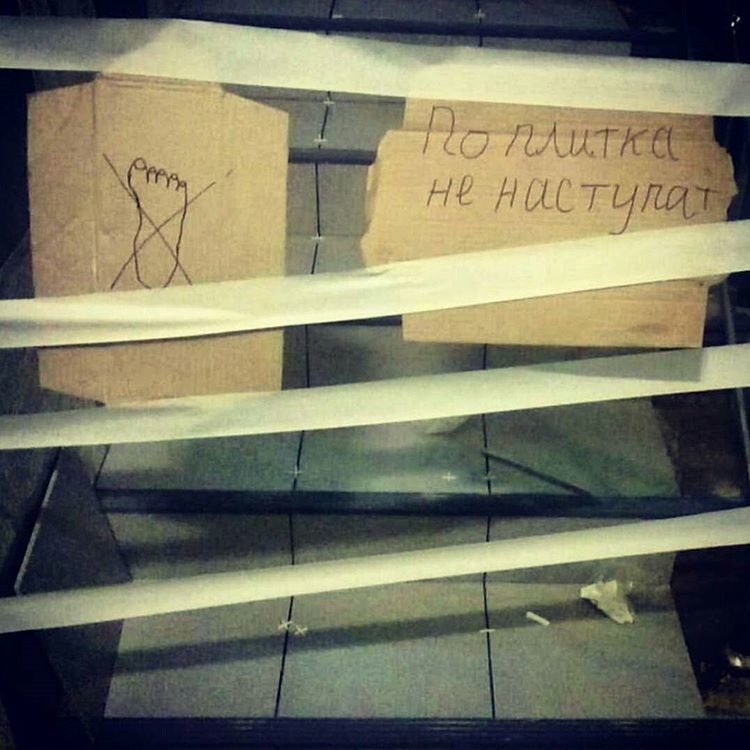 По плитка
не наступат